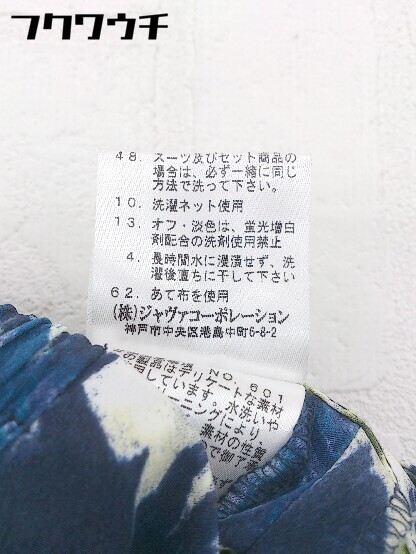 フクワウチ
48. スーツ及びセット商品の
場合は、必ず一緒に同じ
方法で洗って下さい。
10. 洗濯ネット使用
13. オフ・淡色は、蛍光増白
剤配合の洗剤使用禁止
4. 長時間水に浸漬せず、洗
濯後直ちに干して下さい
62. あて布を使用
(株)ジャヴァコーポレーション
神戸市中央区港島中町6-8-2
NO. 601
デリケートな素材
用しています。水洗いや
ーニングにより、
素材の性質